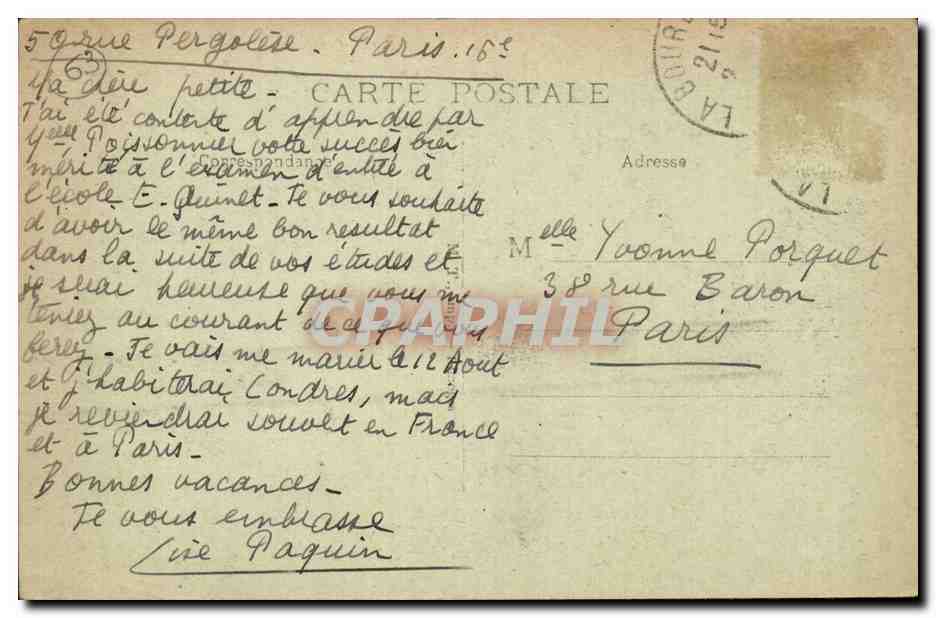 59 rue Pergolèse. Paris. 16e
63
CARTE POSTALE
Ma chère petite -
J'ai été contente d'apprendre par
Melle Poissonnier votre succès bien
mérité à l'examen d'entrée à
Correspondance
l'école E. Quinet - Je vous souhaite
d'avoir le même bon resultat
dans la suite de vos études et
je serai heureuse que vous me
teniez au courant de ce que vous
ferez - Je vais me marier le 12 Aout
et j'habiterai Londres, mais
je reviendrai souvet en France
et à Paris -
Bonnes vacances -
Je vous embrasse
Lise Paquin
LA BOUR
21
Adresse
LA
Melle Yvonne Porquet
38 rue Baron
Paris
CPAPHIL